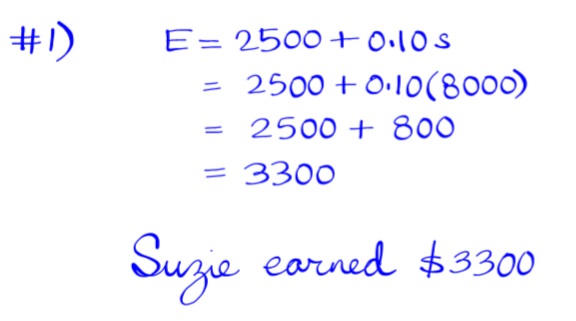 #1) E = 2500 + 0.10s
= 2500 + 0.10(8000)
= 2500 + 800
= 3300
Suzie earned $3300